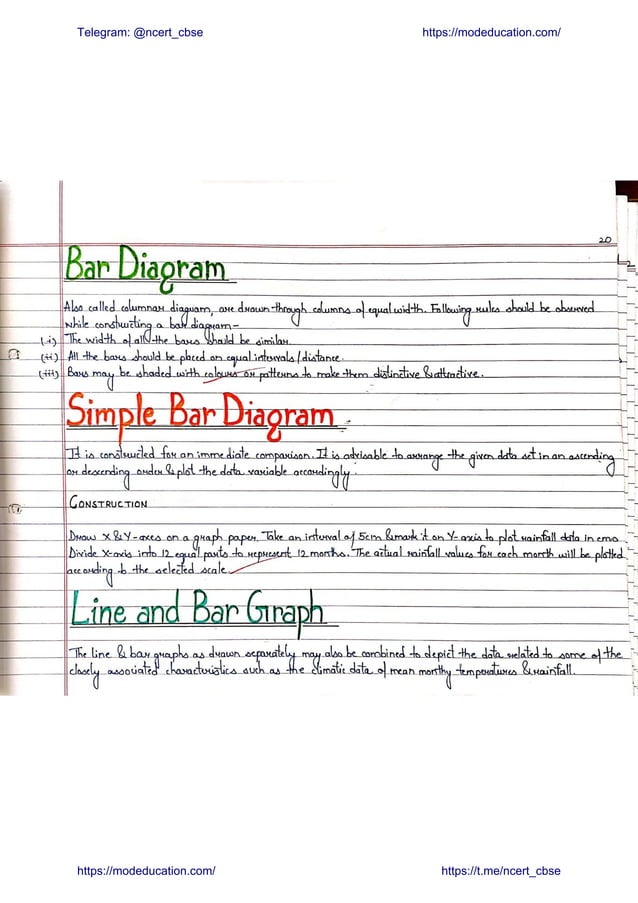 Telegram: @ncert_cbse https://modeducation.com/
20
Bar Diagram
Also called columnar diagram, are drawn through columns of equal width. Following rules should be observed
while constructing a bar diagram-
(i) The width of all the bars should be similar.
(ii) All the bars should be placed on equal intervals/distance.
(iii) Bars may be shaded with colours or patterns to make them distinctive & attractive.
Simple Bar Diagram
It is constructed for an immediate comparison. It is advisable to arrange the given data set in an ascending
or descending order & plot the data variable accordingly.
CONSTRUCTION
Draw X & Y-axes on a graph paper. Take an interval of 5cm & mark it on Y-axis to plot rainfall data in cms.
Divide X-axis into 12 equal parts to represent 12 months. The actual rainfall values for each month will be plotted
according to the selected scale.
Line and Bar Graph
The line & bar graphs as drawn separately may also be combined to depict the data related to some of the
closely associated characteristics such as the climatic data of mean monthy temperatures & rainfall.
https://modeducation.com/ https://t.me/ncert_cbse